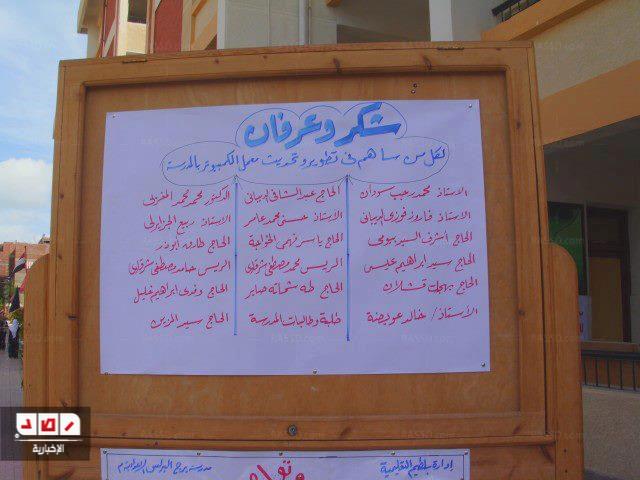 شكر وعرفان
لكل من ساهم فى تطوير وتحديث معمل الكمبيوتر بالمدرسة
الاستاذ محمد رجب سودان
الاستاذ فاروق فوزى الديبانى
الحاج اشرف السيد بيومى
الحاج سيد ابراهيم خميس
الحاج بهجت قشلان
الاستاذ / خالد عويضة
الحاج عبد الشافى الديبانى
الاستاذ حسنى محمد عامر
الحاج ياسر فهمى الخواجة
الريس محمد مصطفى شرقاوى
الحاج طه شحاته صابر
طلبة وطالبات المدرسة
الدكتور محمد محمد المغربى
الاستاذ ربيع الجزايرلى
الحاج طارق ابو نار
الريس حامد مصطفى شرقاوى
الحاج وفدى ابراهيم خليل
الحاج سيد المزين
إدارة بلطيم التعليمية
مدرسة برج البرلس
رصد
الإخبارية